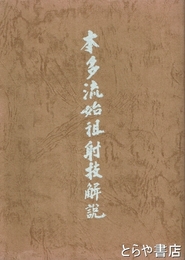 本多流始祖射技解説
とらや書店